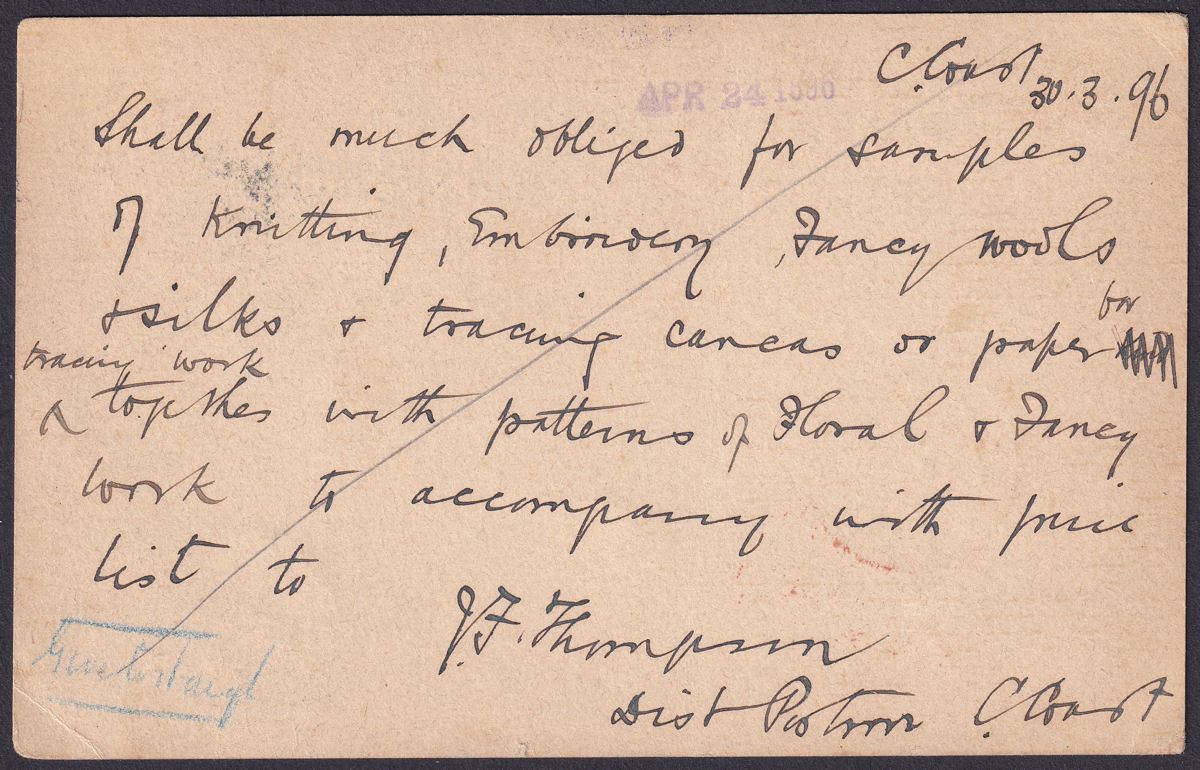 C. Coast
30.3.96
APR 24 1896
Shall be much obliged for samples
of Knitting, Embroidery, Fancy wools
& silks & tracing canvas or paper for
tracing work
together with patterns of Floral & Fancy
work to accompany with price
list to
J.F. Thompson
Dist Postmr C. Coast